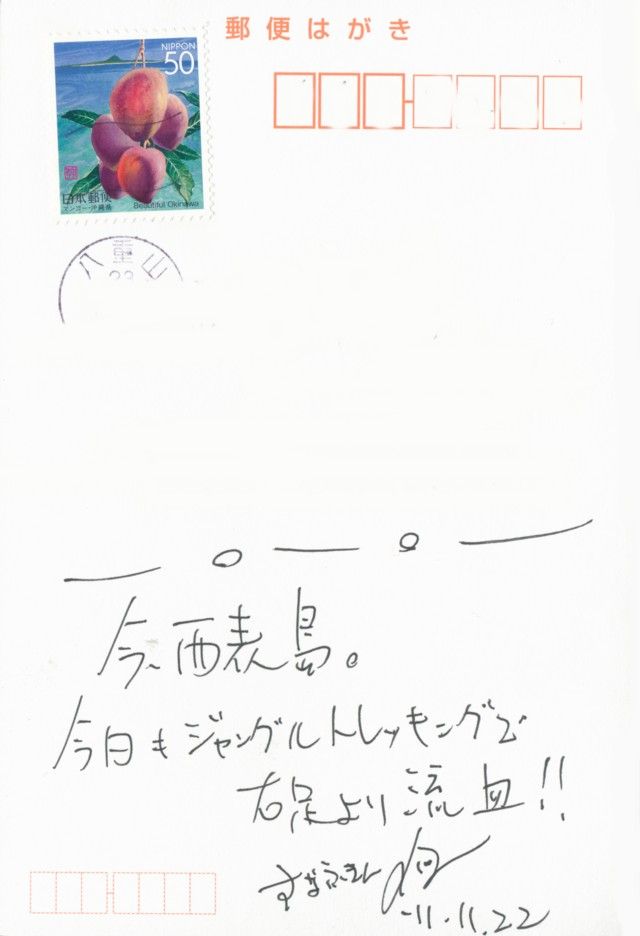 郵便はがき
NIPPON
50
日本郵便
マンゴー・沖縄県
Beautiful Okinawa
八重山
23
今、西表島。
今日もジャングルトレッキングで
右足より流血!!
-11.11.22